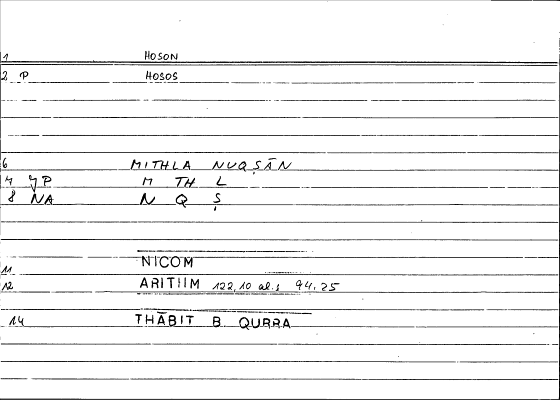 1 HOSON
2 P HOSOS
6 MITHLA NUQṢĀN
7 JP M TH L
8 NA N Q Ṣ
11 NICOM
12 ARITIIM 122,10 al.s 94.25
14 THĀBIT B. QURRA